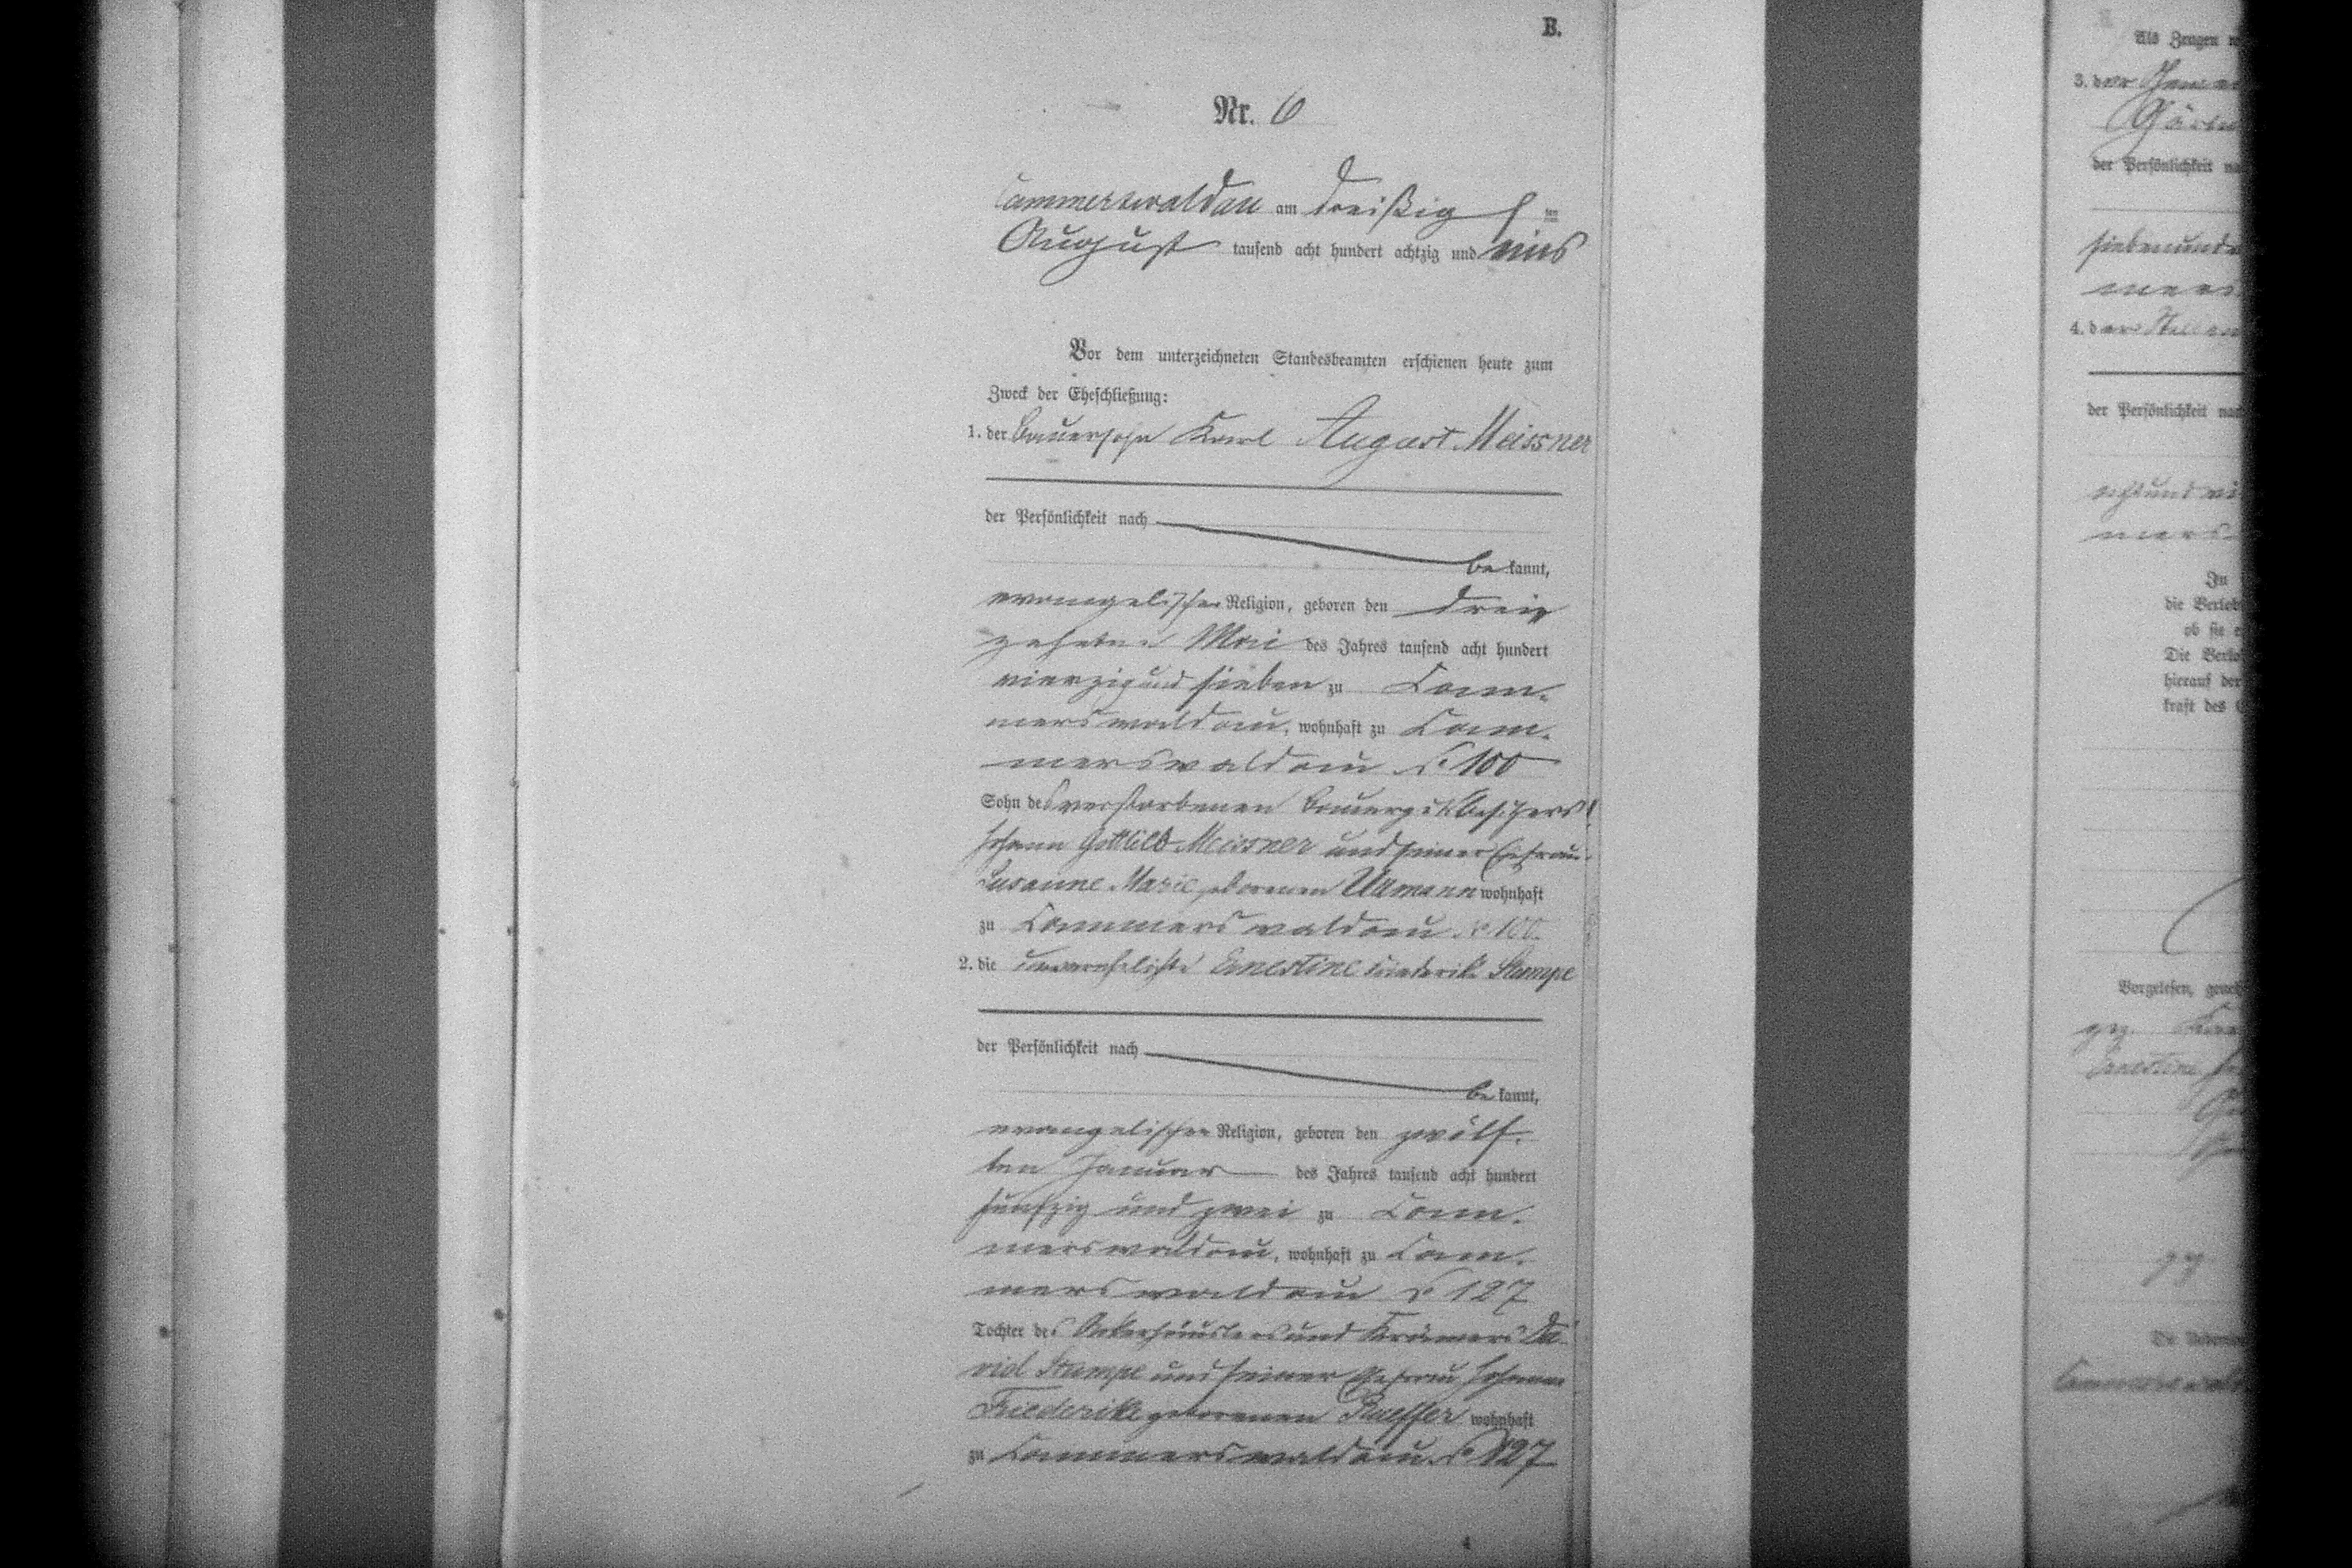 B.
Nr. 6
Cammerswaldau am dreißig s ten
August tausend acht hundert achtzig und eins
Vor dem unterzeichneten Standesbeamten erschienen heute zum
Zweck der Eheschließung:
1. der Bauersohn Karl August Meissner
der Persönlichkeit nach
be kannt,
evangelischer Religion, geboren den drei
zehnten Mai des Jahres tausend acht hundert
vierzig und sieben zu Cam-
merswaldau, wohnhaft zu Cam-
merswaldau No 100
Sohn des verstorbenen Bauergutsbesitzers
Johann Gottlieb Meissner und seiner Ehefrau
Susanne Marie geborenen Ullmann wohnhaft
zu Cammerswaldau No 100.
2. die unverehelichte Ernestine Friederike Stumpe
der Persönlichkeit nach
be kannt,
evangelischer Religion, geboren den zwölf-
ten Januar des Jahres tausend acht hundert
fünfzig und zwei zu Cam-
merswaldau, wohnhaft zu Cam-
merswaldau No 127
Tochter des Ackerhäuslers und Krämers Da-
vid Stumpe und seiner Ehefrau Johanne
Friederike geborenen wohnhaft
zu Cammerswaldau No 127
4
Als Zeugen
3. der
der Persönlichkeit
siebenund
4. der Stellen
der Persönlichkeit nach
achtund
mers
In
die Verlob
ob sie
Die Verlo
hierauf der
kraft des
Vorgelesen, geneh
gez. Karl
Ernestine
gez
Cammerswald